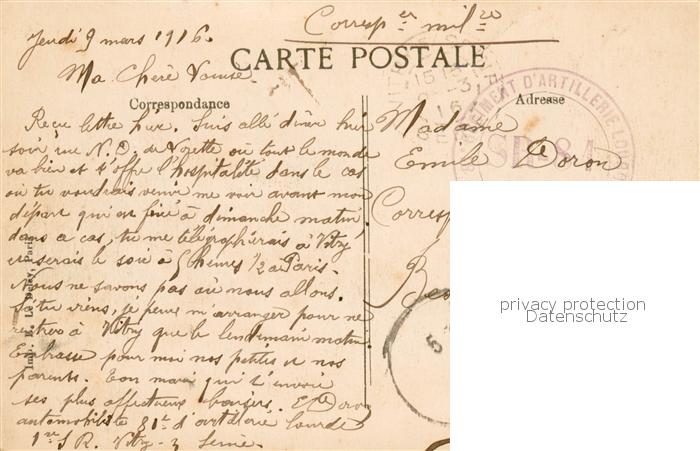 Corresp ce mil re
Jeudi 9 mars 1916.
CARTE POSTALE
Ma Chère Louise.
Correspondance
Adresse
Reçu lettre hier. Suis allé dîner hier
soir rue N. D. de Lorette où tout le monde
va bien et t'offre l'hospitalité dans le cas
où tu voudrais venir me voir avant mon
départ qui est fixé à dimanche matin
dans ce cas, tu me télégraphierais à Vitry
et serais le soir à 5 heures 1/2 à Paris.
Nous ne savons pas où nous allons.
Si tu viens, je peux m'arranger pour ne
rentrer à Vitry que le lendemain matin
Embrasse pour moi nos petites et nos
parents. Ton mari qui t'envoie
ses plus affectueux baisers. Ele Doron
automobiliste 81e d'artillerie lourde
1re S R. Vitry s Seine.
Madame
Emile Doron
Corresp
Be
RÉGIMENT D'ARTILLERIE LOURDE
15
16
5
Paris
privacy protection
Datenschutz